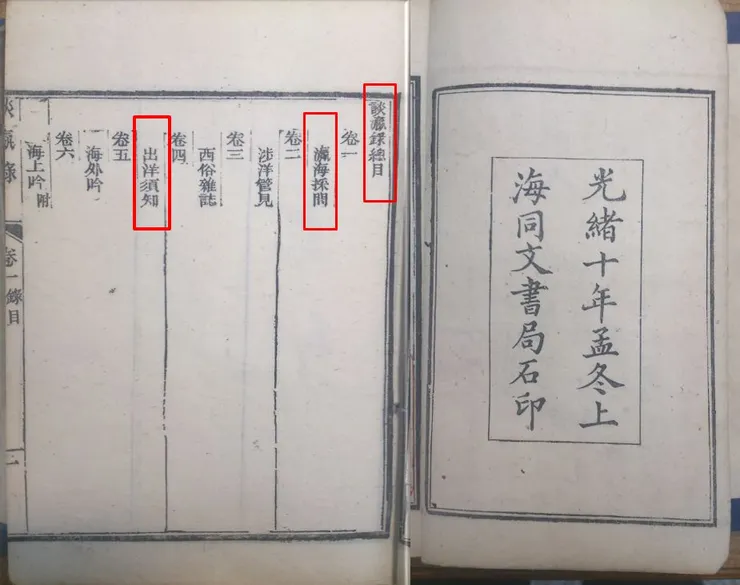 光緒十年孟冬上
海同文書局石印
談瀛錄總目
卷一
瀛海採問
卷二
涉洋管見
卷三
西俗雜誌
卷四
出洋須知
卷五
海外吟
卷六
海上吟 附
談瀛錄
卷一